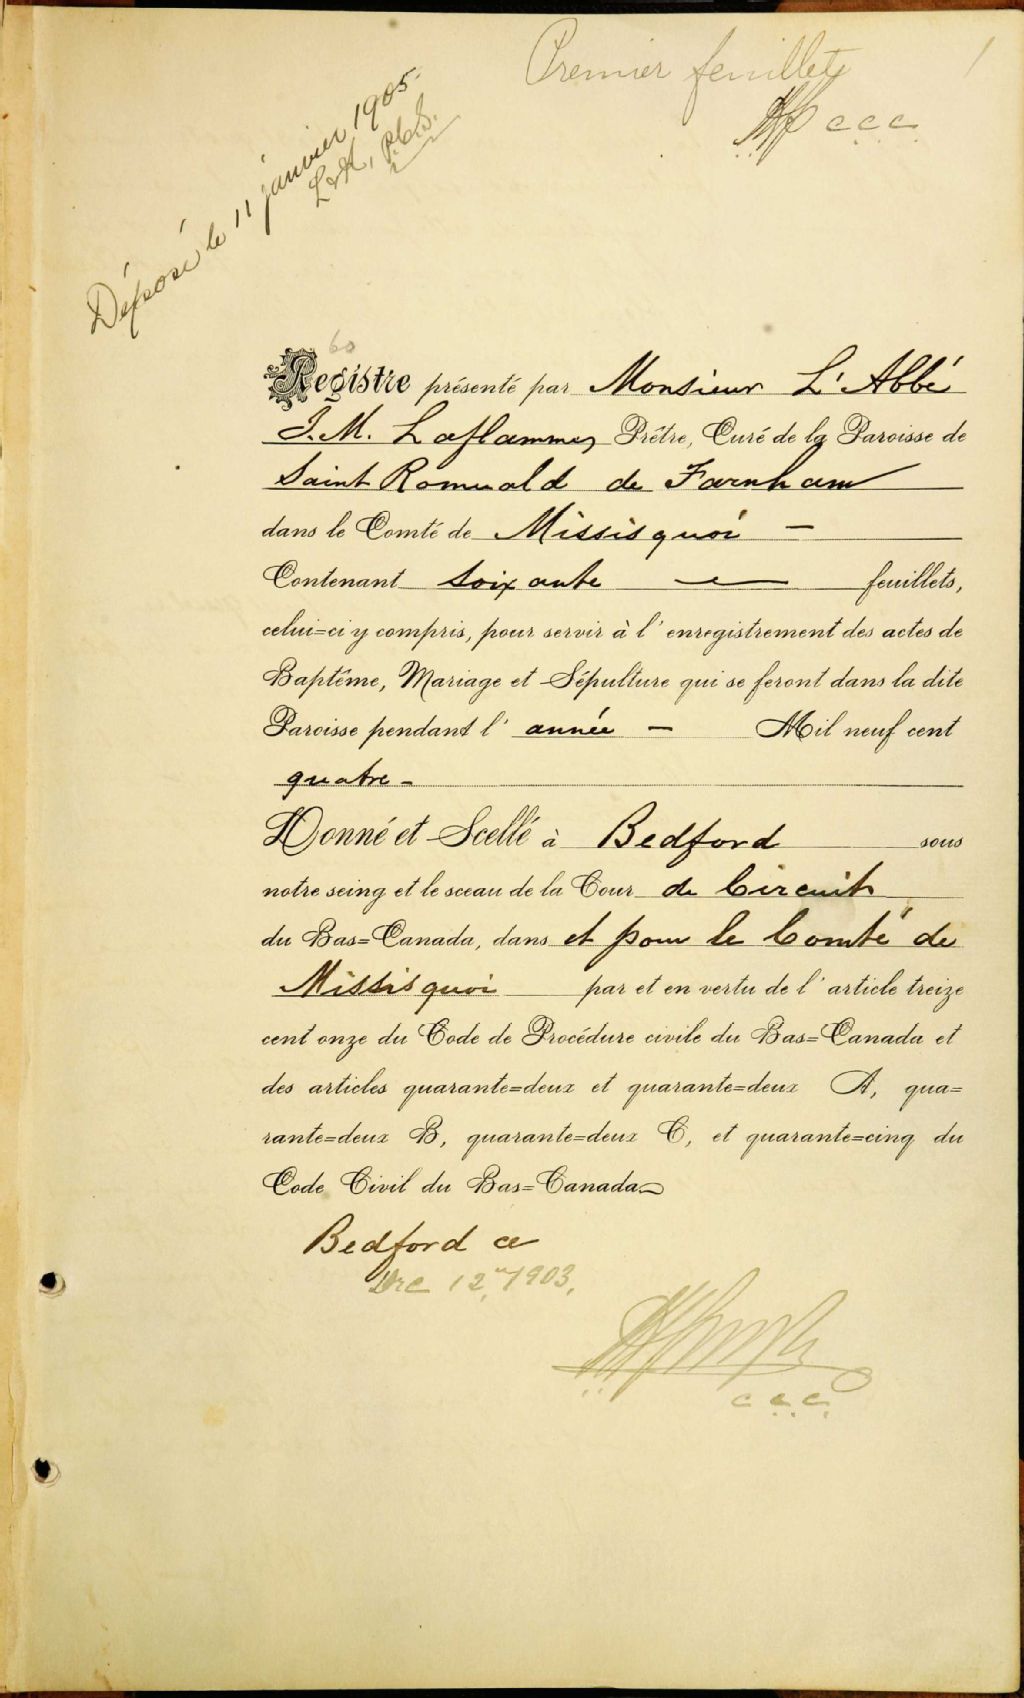 Premier feuillet
1
c.c.c.
Déposé le 11 janvier 1905.
60
Registre présenté par Monsieur L'Abbé
J. M. Laflamme, Prêtre, Curé de la Paroisse de
Saint Romuald de Farnham
dans le Comté de Missisquoi –
Contenant soixante — feuillets,
celui=ci y compris, pour servir à l'enregistrement des actes de
Baptême, Mariage et Sépulture qui se feront dans la dite
Paroisse pendant l'année – Mil neuf cent
quatre –
Donné et Scellé à Bedford sous
notre seing et le sceau de la Cour de Circuit
du Bas=Canada, dans et pour le Comté de
Missisquoi par et en vertu de l'article treize
cent onze du Code de Procédure civile du Bas=Canada et
des articles quarante=deux et quarante=deux A, qua=
rante=deux B, quarante=deux C, et quarante=cinq du
Code Civil du Bas=Canada
Bedford ce
Dec 12, 1903.
c.c.c.